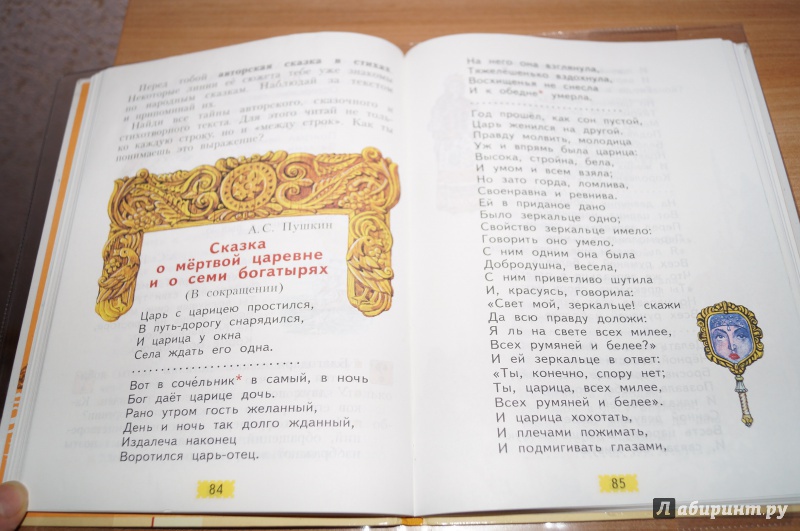 Перед тобой авторская сказка в стихах.
Некоторые линии её сюжета тебе уже знакомы
по народным сказкам. Наблюдай за текстом
и припоминай их.
Найди все тайны авторского, сказочного и
стихотворного текста. Для этого читай не толь-
ко каждую строку, но и «между строк». Как ты
понимаешь это выражение?
А.С. Пушкин
Сказка
о мёртвой царевне
и о семи богатырях
(В сокращении)
Царь с царицею простился,
В путь-дорогу снарядился,
И царица у окна
Села ждать его одна.
..............................
Вот в соче́льник* в самый, в ночь
Бог даёт царице дочь.
Рано утром гость желанный,
День и ночь так долго жданный,
Издалеча наконец
Воротился царь-отец.
84
На него она взглянула,
Тяжелёшенько вздохнула,
Восхищенья не снесла
И к обедне* умерла.
..............................
Год прошёл, как сон пустой,
Царь женился на другой.
Правду молвить, молодица
Уж и впрямь была царица:
Высока, стройна, бела,
И умом и всем взяла;
Но зато горда, ломлива,
Своенравна и ревнива.
Ей в приданое дано
Было зеркальце одно;
Свойство зеркальце имело:
Говорить оно умело.
С ним одним она была
Добродушна, весела,
С ним приветливо шутила
И, красуясь, говорила:
«Свет мой, зеркальце! скажи
Да всю правду доложи:
Я ль на свете всех милее,
Всех румяней и белее?»
И ей зеркальце в ответ:
«Ты, конечно, спору нет;
Ты, царица, всех милее,
Всех румяней и белее».
И царица хохотать,
И плечами пожимать,
И подмигивать глазами,
85
Лабиринт.ру